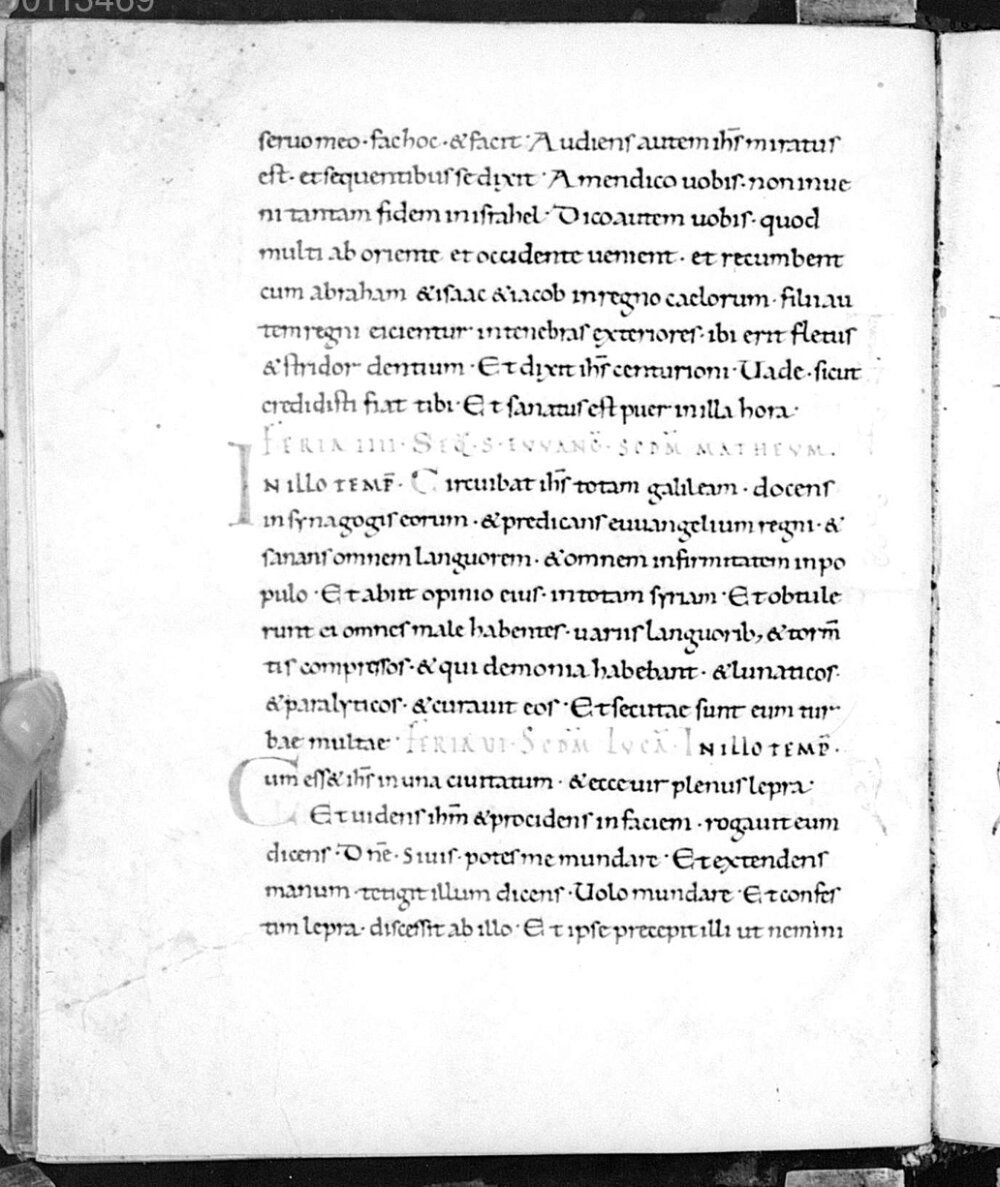 00113469
seruo meo · fac hoc · & facit · Audiens autem ih̅s miratus
est · et sequentibus se dixit · Amen dico uobis · non inue
ni tantam fidem in israhel · Dico autem uobis · quod
multi ab oriente et occidente uenient · et recumbent
cum abraham & isaac & iacob in regno caelorum · filii au
tem regni eicientur in tenebras exteriores · ibi erit fletus
& stridor dentium · Et dixit ih̅s centurioni · Uade · sicut
credidisti fiat tibi · Et sanatus est puer in illa hora ·
FERIA IIII · SEQ̅ · S · EVVANG̅ · SCDM̅ MATHEVM .
IN ILLO TEMP̅R · Circuibat ih̅s totam galileam · docens
in synagogis eorum · & predicans euuangelium regni · &
sanans omnem languorem · & omnem infirmitatem in po
pulo · Et abiit opinio eius · in totam syriam · Et obtule
runt ei omnes male habentes · uariis languorib; & torm̅
tis compressos · & qui demonia habebant · & lunaticos ·
& paralyticos · & curauit eos · Et secutae sunt eum tur
bae multae · FERIA VI · SCDM̅ LVCA̅ · IN ILLO TEMP̅R ·
Cum ess& ih̅s in una ciuitatum · & ecce uir plenus lepra ·
Et uidens ih̅m & procidens in faciem · rogauit eum
dicens · Dn̅e · si uis · potes me mundare · Et extendens
manum · tetigit illum dicens · Uolo mundare · Et confes
tim lepra · discessit ab illo · Et ipse precepit illi ut nemini